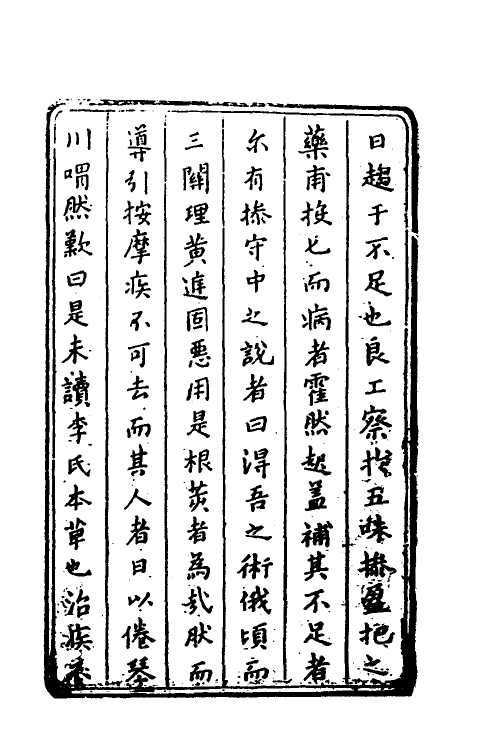 日趨于不足也良工察抱五味攈盈把之
藥甫投匕而病者霍然起蓋補其不足者
尓有操守中之說者曰淂吾之術俄頃而
三關理黄庭固悪用是根荄者為㢤肰而
導引按摩疾不可去而其人者日以倦琴
川喟然歎曰是未讀李氏本草也治疾